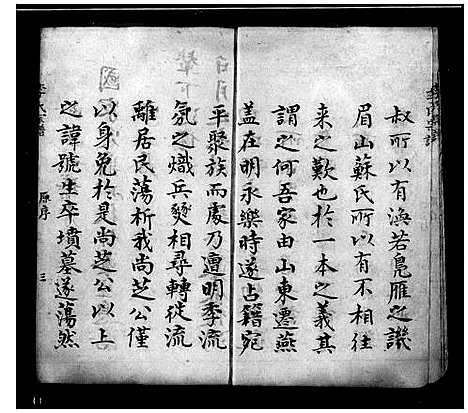 叔所以有渙若鳧雁之譏
眉山蘇氏所以有不相往
来之歎也於一本之義其
謂之何吾家由山東遷燕
盖在明永樂時遂占籍宛
平聚族而處乃遭明季流
氛之熾兵燹相尋轉徙流
離居民蕩析我尚芝公僅
以身免於是尚芝公以上
之諱號生卒墳墓遂蕩然
原序
三